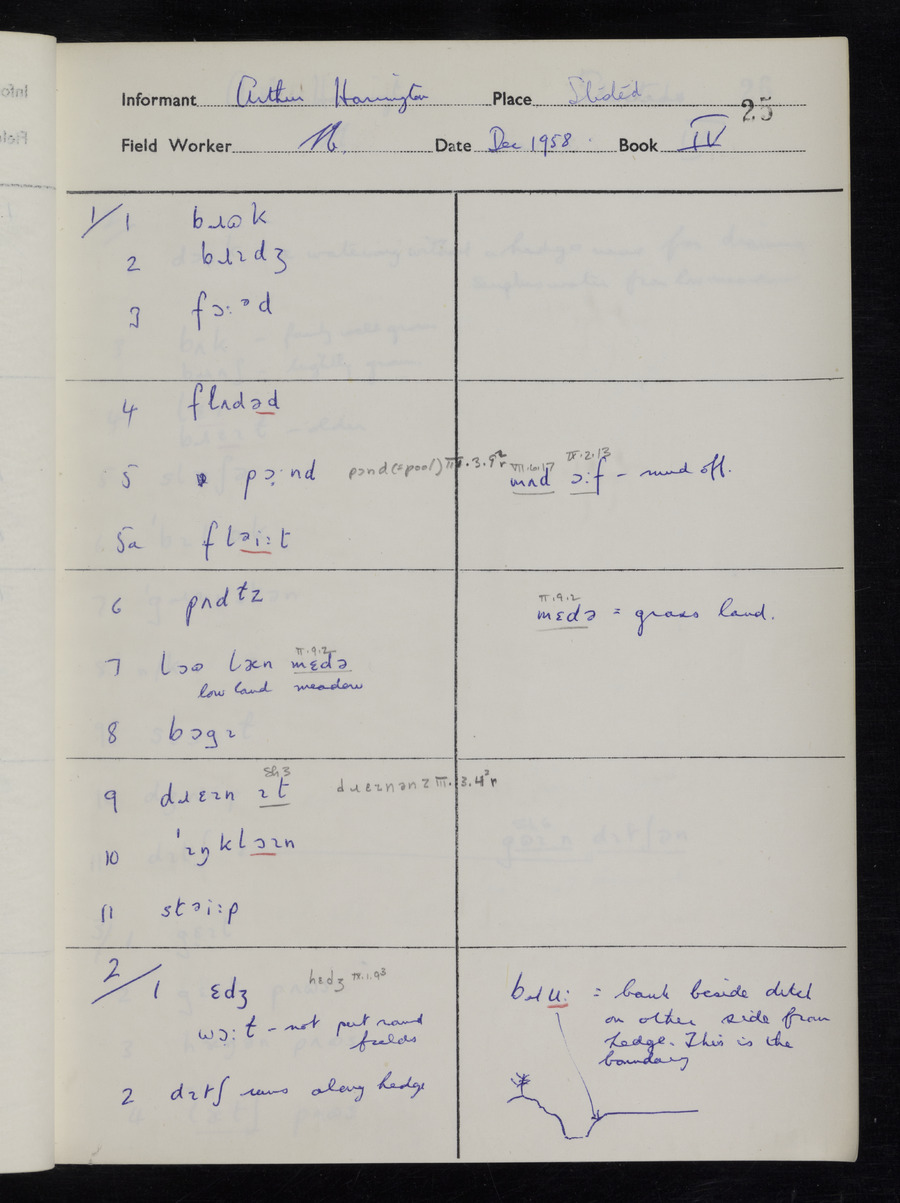 Informant Arthur Harrington Place Slidéd
25
Field Worker Date Dec 1958. Book IV
1/ 1 bɹʊk
2 bɹɪdʒ
3 fɔːəd
4 flʌdəd
5 pɔːnd pɔnd (= pool) III.3.9²r
VII.6.17 IV.2.13
mʌd ɔːf – mud off.
5a fləiːt
6 pʌdᵗz
II.9.2
mɛdə = grass land.
7 lɔʊ læn mɛdə
II.9.2
low land meadow
8 bɔgɪ
9 dɹɛɪn ɪt
drɛɪnənz III.3.4²r
10 ˈɪŋklɔɪn
11 stəiːp
2/ 1 ɛdʒ hɛdʒ IV.1.93
wɔːt – not put round
fields
2 dɪtʃ runs along hedge
bɹuː = bank beside ditch
on other side from
hedge. This is the
boundary